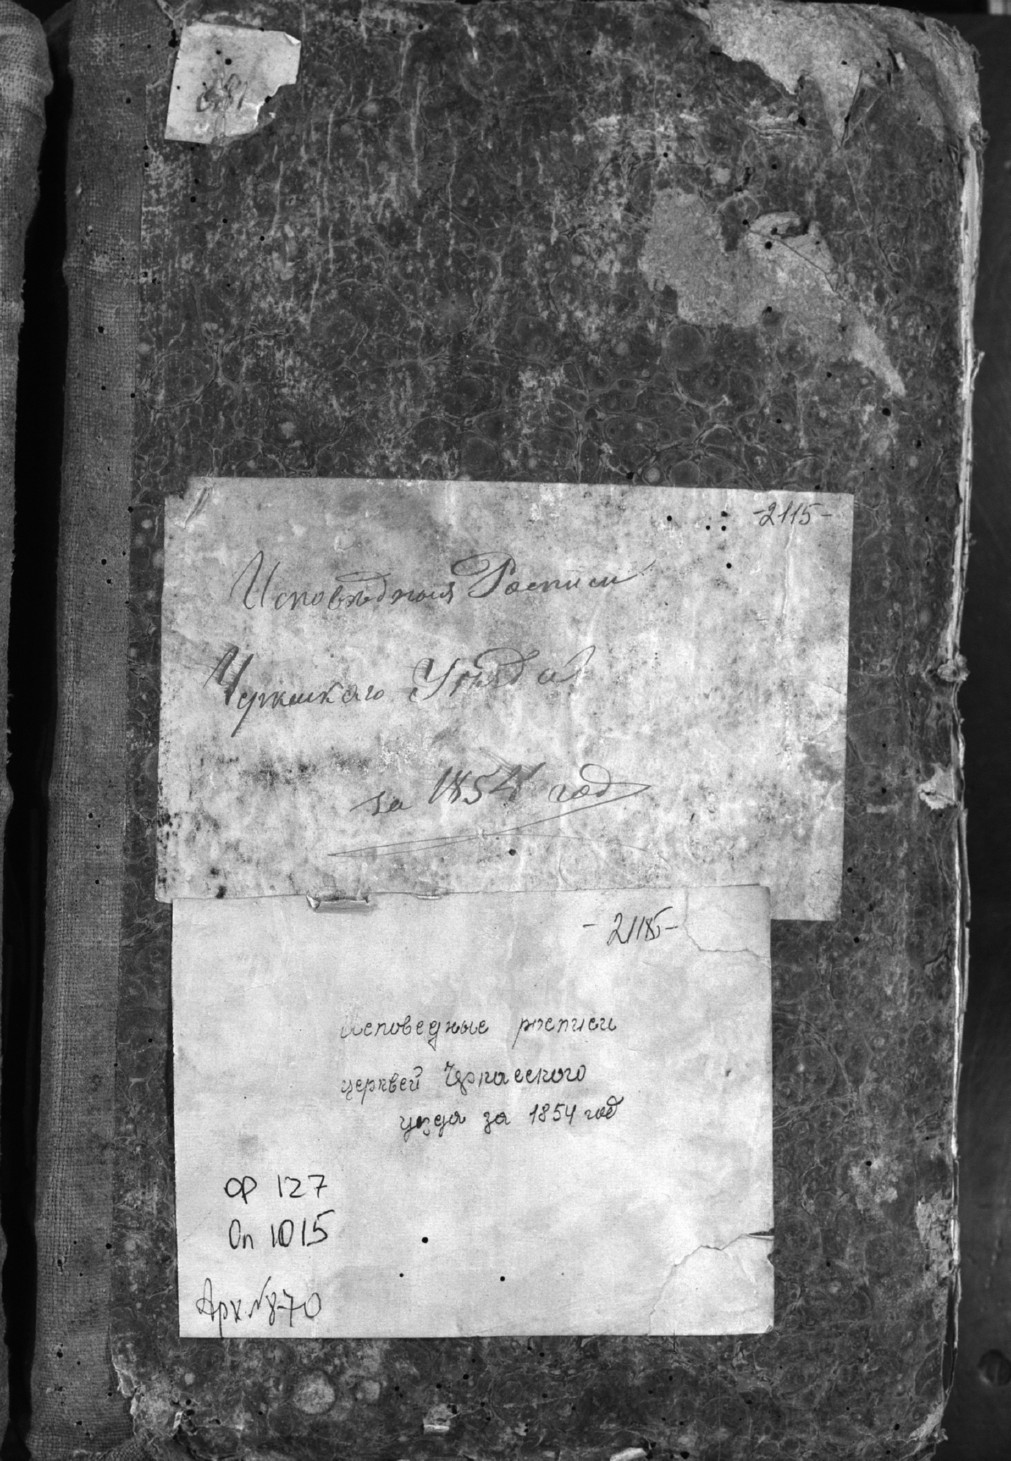 681
-2115-
Исповѣдныя Росписи
Черкаскаго Уѣзда
за 1854 год
-2115-
Исповедные росписи
церквей Черкасского
уезда за 1854 год
Ф 127
Оп 1015
Арх №870